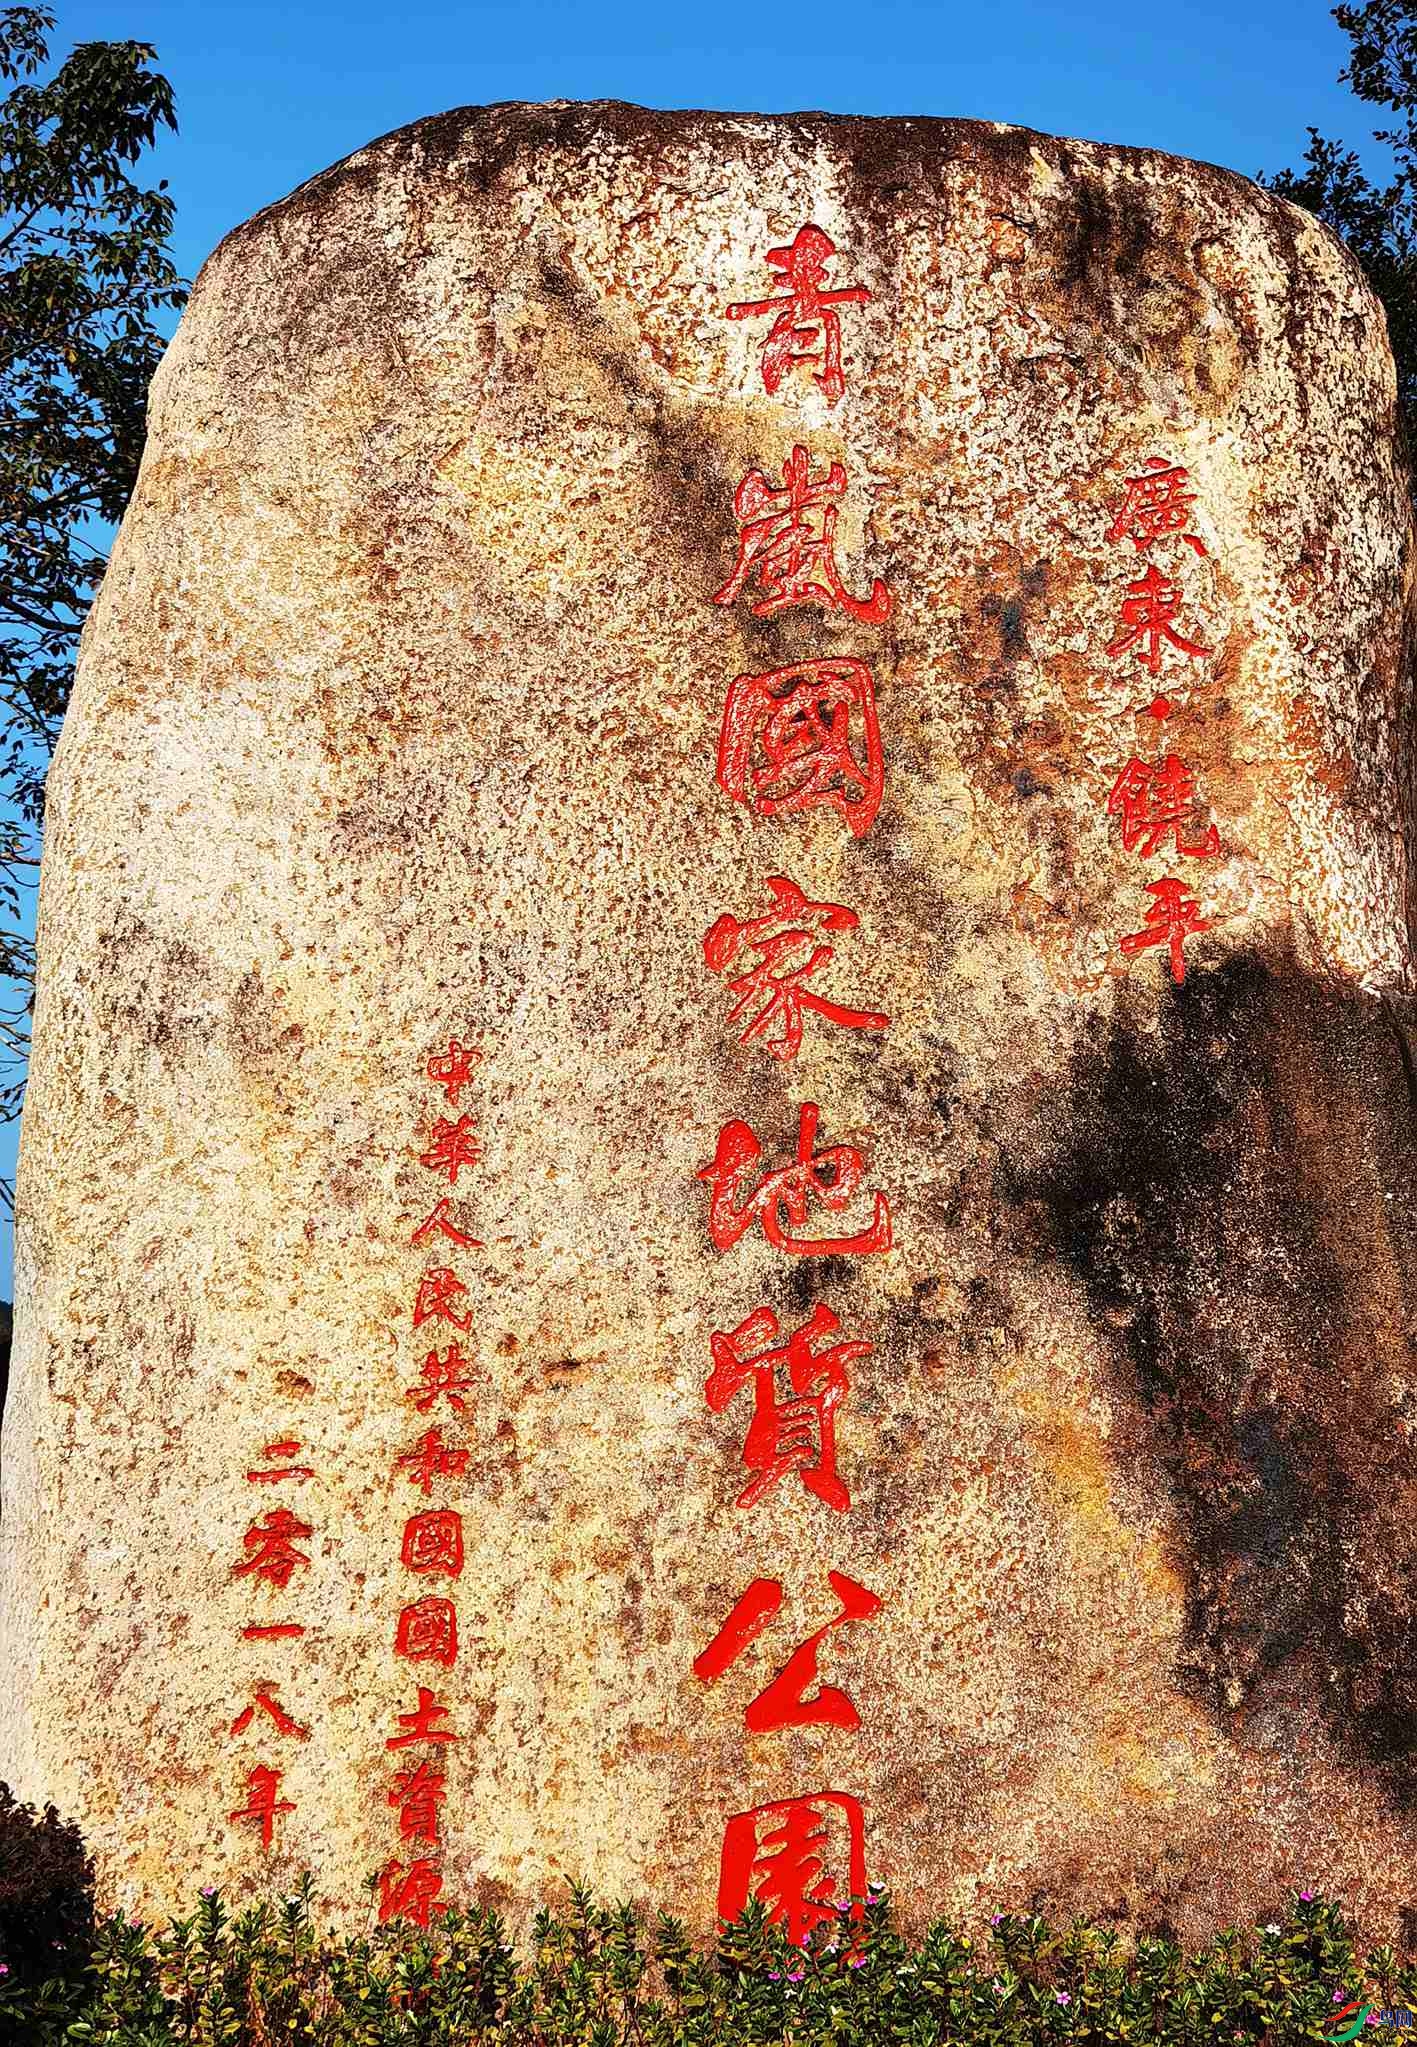 廣東·饒平
青嵐國家地質公園
中華人民共和國國土資源
二零一八年